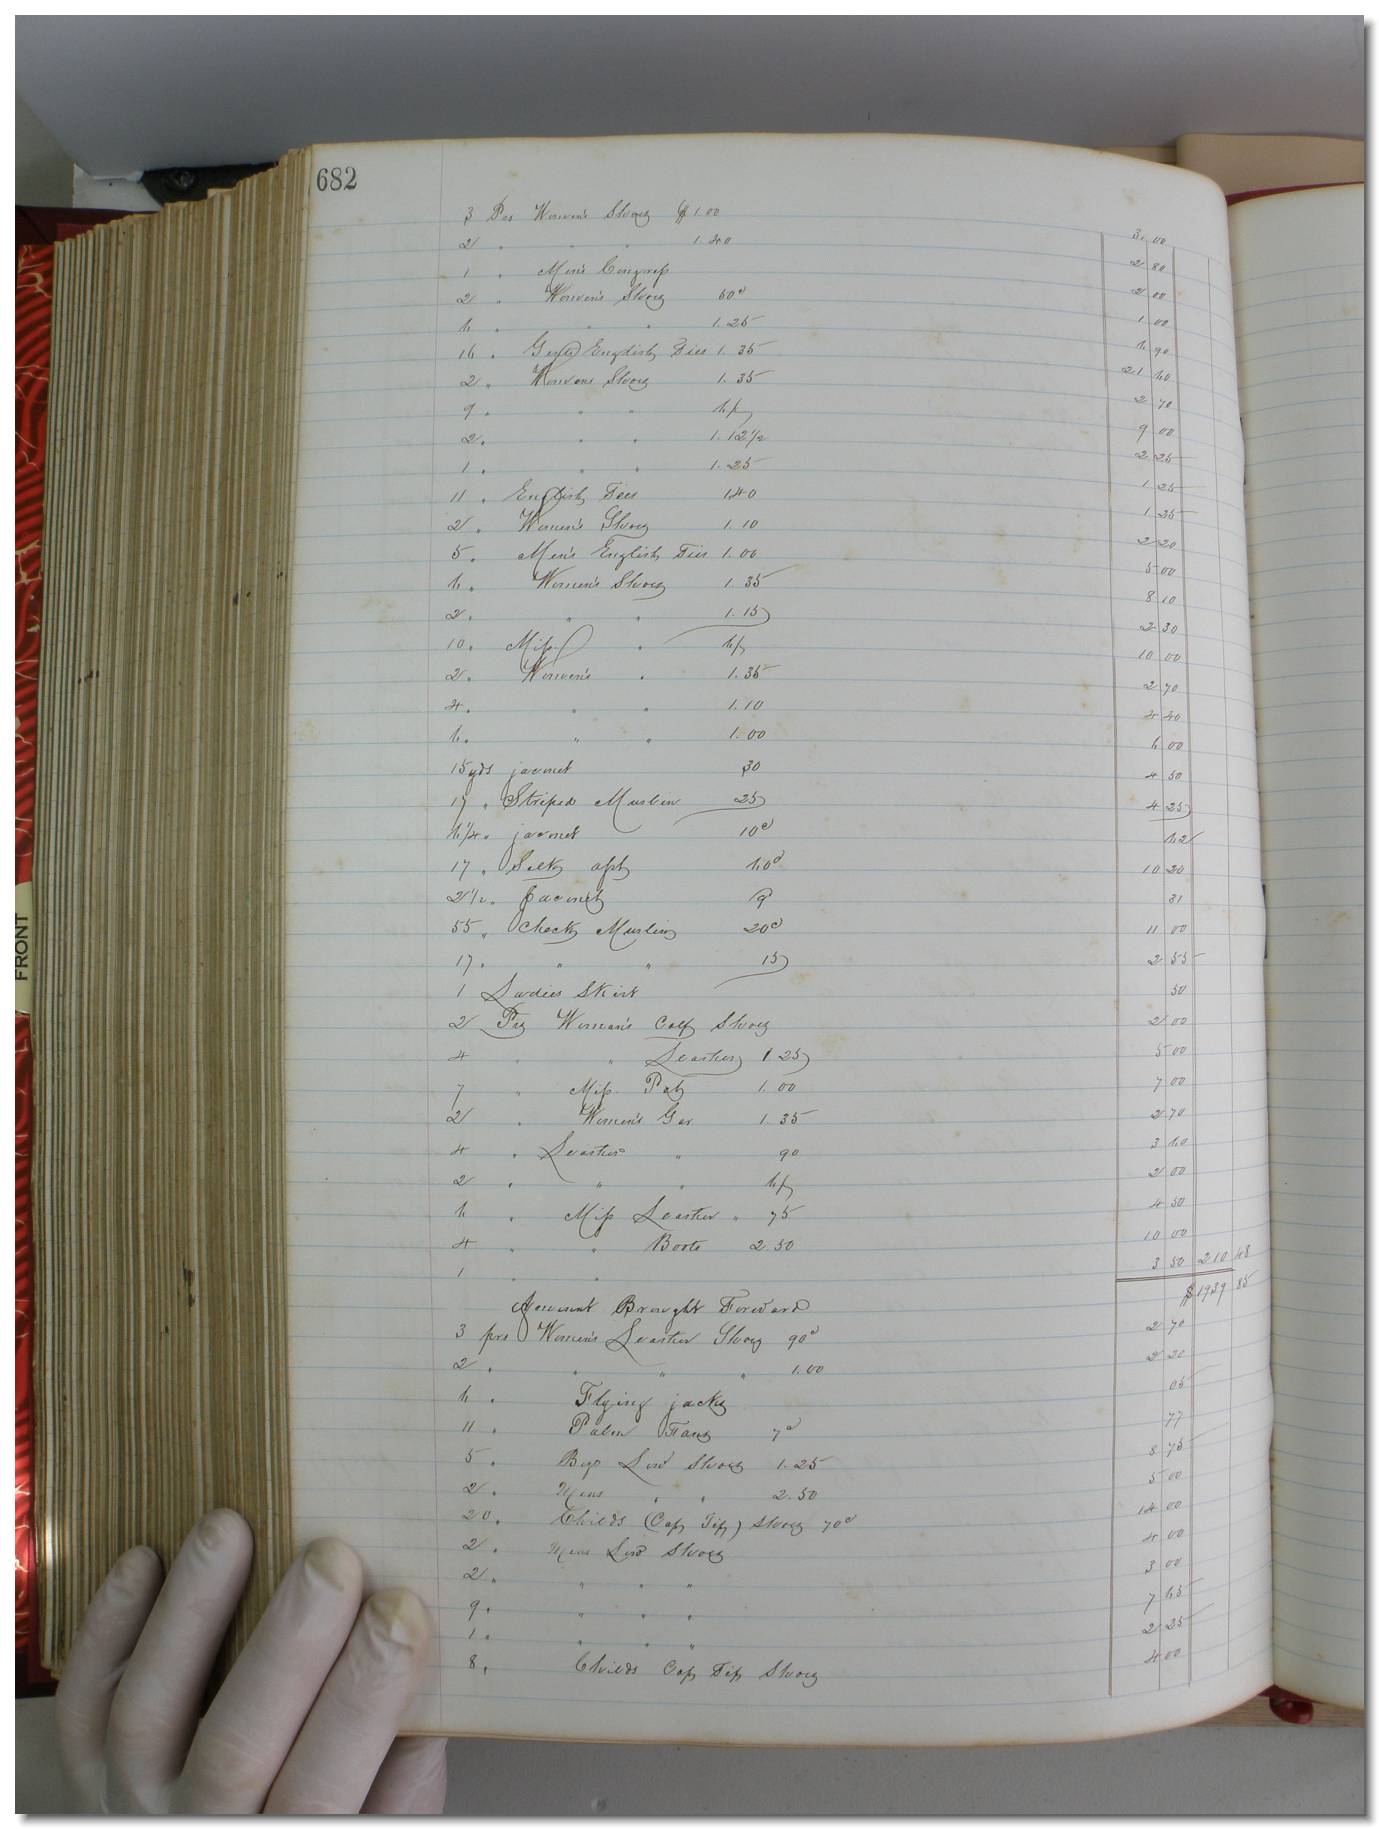 682
3 Prs Women's Shoes $1.00 3.00
2 " " " 1.40 2 80
1 " Men's Congress 2 00
2 " Women's Shoes 50c 1 00
6 " " " 1.25 6 90
16 " Gents English Ties 1.35 21 60
2 " Womens Shoes 1.35 2 70
9 " " " 9 00
2 " " " 1.12½ 2 25
1 " " " 1.25 1 25
11 " English Ties 140 1 25
2 " Women's Shoes 1.10 2 20
5 " Men's English Ties 1.00 5 00
6 " Women's Shoes 1.35 8 10
2 " " " 1.15 2 30
10 " Miss " 10 00
2 " Women's " 1.35 2 70
4 " " " 1.10 4 40
6 " " " 1.00 6 00
15 yds jaconet 30 4 50
17 " Striped Muslin 25 4 25
6¼ " jaconet 10c 62
17 " Silk 60c 10 20
2½ " Jaconet 31
55 " Check Muslin 20c 11 00
17 " " " 15 2 55
1 Ladies Skirt 50
2 Prs Woman's Calf Shoes 2 00
4 " " Leather 1 25 5 00
7 " Miss Peb 1.00 7 00
2 " Women's Gar 1.35 2 70
4 " Leather " 90 3 60
2 " " " 2 00
6 " Miss Leather " 75 4 50
4 " " Boots 2.50 10 00
1 " " 3 50 210 48
Amount Brought Forward $1939 85
3 prs Women's Leather Shoes 90c 2 70
2 " " " " 1.00 2 20
6 " Flying jacks 05
11 " Palm Fans 7c 77
5 " Boys Low Shoes 1.25 8 75
2 " Mens " " 2.50 5 00
20 " Childs (Cap Tip) Shoes 70c 14 00
2 " Mens Low Shoes 4 00
2 " " " " 3 00
9 " " " " 7 65
1 " " " " 2 25
8 " Childs Cap Tip Shoes 4 00
FRONT